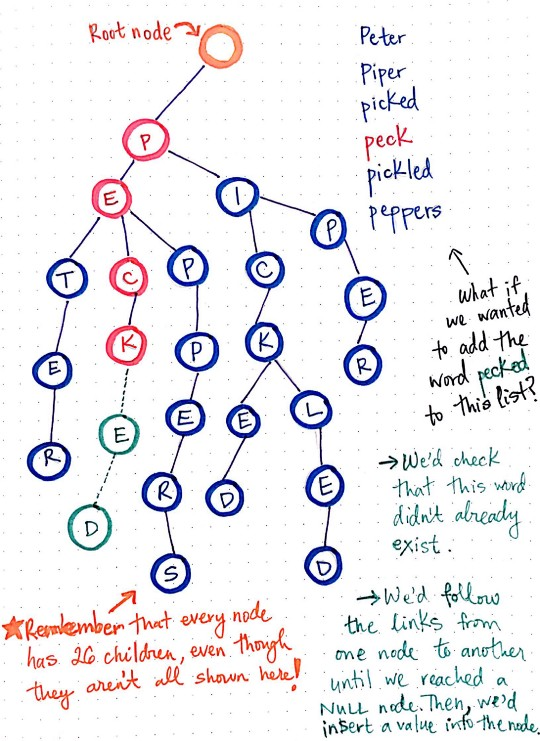 Root node
Peter
Piper
picked
peck
pickled
peppers
P
E
I
P
T
C
P
C
E
E
K
P
K
R
R
E
E
E
L
D
R
D
E
S
D
what if
we wanted
to add the
word pecked
to this list?
→We'd check
that this word
didn't already
exist.
→We'd follow
the links from
one node to another
until we reached a
NULL node. Then, we'd
insert a value into the node.
★Remember that every node
has 26 children, even though
they aren't all shown here!